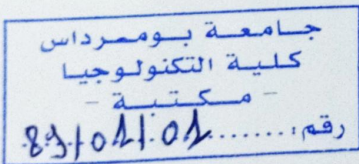 جامعة بومرداس
كلية التكنولوجيا
- مكتبة -
رقم:.......89/01/01